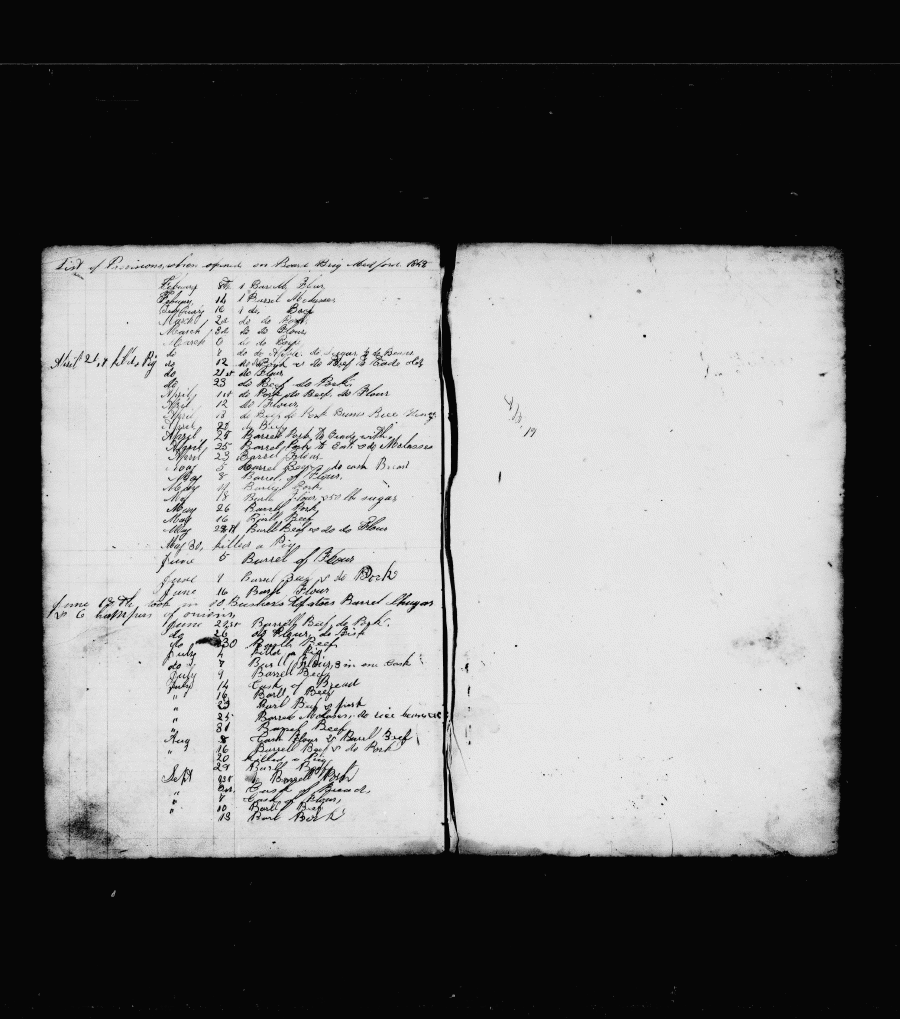 List of Provisions, when opened on Board Brig Medford 1868
Febuary 8th 1 Barrell Flour
Febuary 14 1 Barrel Molasses
Febuary 16 1 do, Beef
March 2d do do Pork
March 3d do do Flour
March 6 do do Beef
do 7 do do do Sugar do Beans
April 21st killd, Pig do 12 do Pork & do Beef to Trade
do 21st do Flour
do 23 do Beef do Pork
April, 1st do Pork do Beef, do Flour
April 12 do Flour
April 13 do Beef do Pork Beans Rice
April 22 do Beef
April 25 Barrell Pork to Trade with
April, 25 Barrel Pork to do Molasses
April 23 Barrel Flour
May 5 Barrel Beef & do cask Bread
May 8 Barrel, of Flour,
May 11 Barrel Pork
May 18 Barl Flour & 50 lb sugar
May 26 Barrell Pork
May 16 Barll Beef
May 28th Barll Beef & do do Flour
May 30, killed a Pig
June 5 Barrel of Flour
June 9 Barrel Beef & do Pork
June 16 Barl Flour
June 17th took in 10 Bushels Potatoes Barrel Shugar
& 6 hampers of onions
June 22st Barrell Beef, do Pork.
do 26 do Flour, do Beef
do 30 Barll Beef
July 4 killed a Pig
do 7 Barll Flour, 3 in one Cask
July 9 Barrell Beef
July 14 Cask of Bread
" 16 Barll, Beef
" 23 Barl Beef & pork
" 25 Barrel Molases, do rice
" 31 Barrel Beef
Aug 8 Cask Flour & Barel Beef
" 16 Barrell Beef & do Pork
20 killed a Pig
29 Barll Beef
Sept 1st do Barrell Pork
" Cask of Bread,
" 7 Cask of Flour,
" 10 Barll Beef
13 Barl Pork